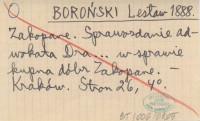 BOROŃSKI Lesław 1888.
Zakopane. Sprawozdanie ad-
wokata Dra... w sprawie
kupna dóbr Zakopane. —
Kraków. Stron 26, 4°.